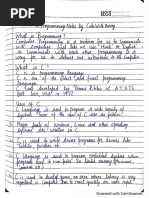 C Programming Notes by CodeWithHarry
What is Programming?
Computer Programming is a medium for us to communicate
with computers. Just like we use 'Hindi' or 'English'
to communicate with each other, programming is a
way for us to deliver our instructions to the computer.
What is C?
C is a programming language
C is one of the oldest and finest programming
languages.
C was developed by Dennis Ritchie at AT&T's
Uses of C
C language is used to program a wide variety of
systems. Some of the uses of C are as follows
Major parts of Windows, Linux and other operating
systems are written in C
C is used to write driver programs for devices
like Tablets, Printers etc.
C language is used to program embedded systems where
programs need to run faster in limited memory
C is used to develop games, an area where
latency is very important, i.e. computer has to react quickly on user input
Scanned with CamScanner